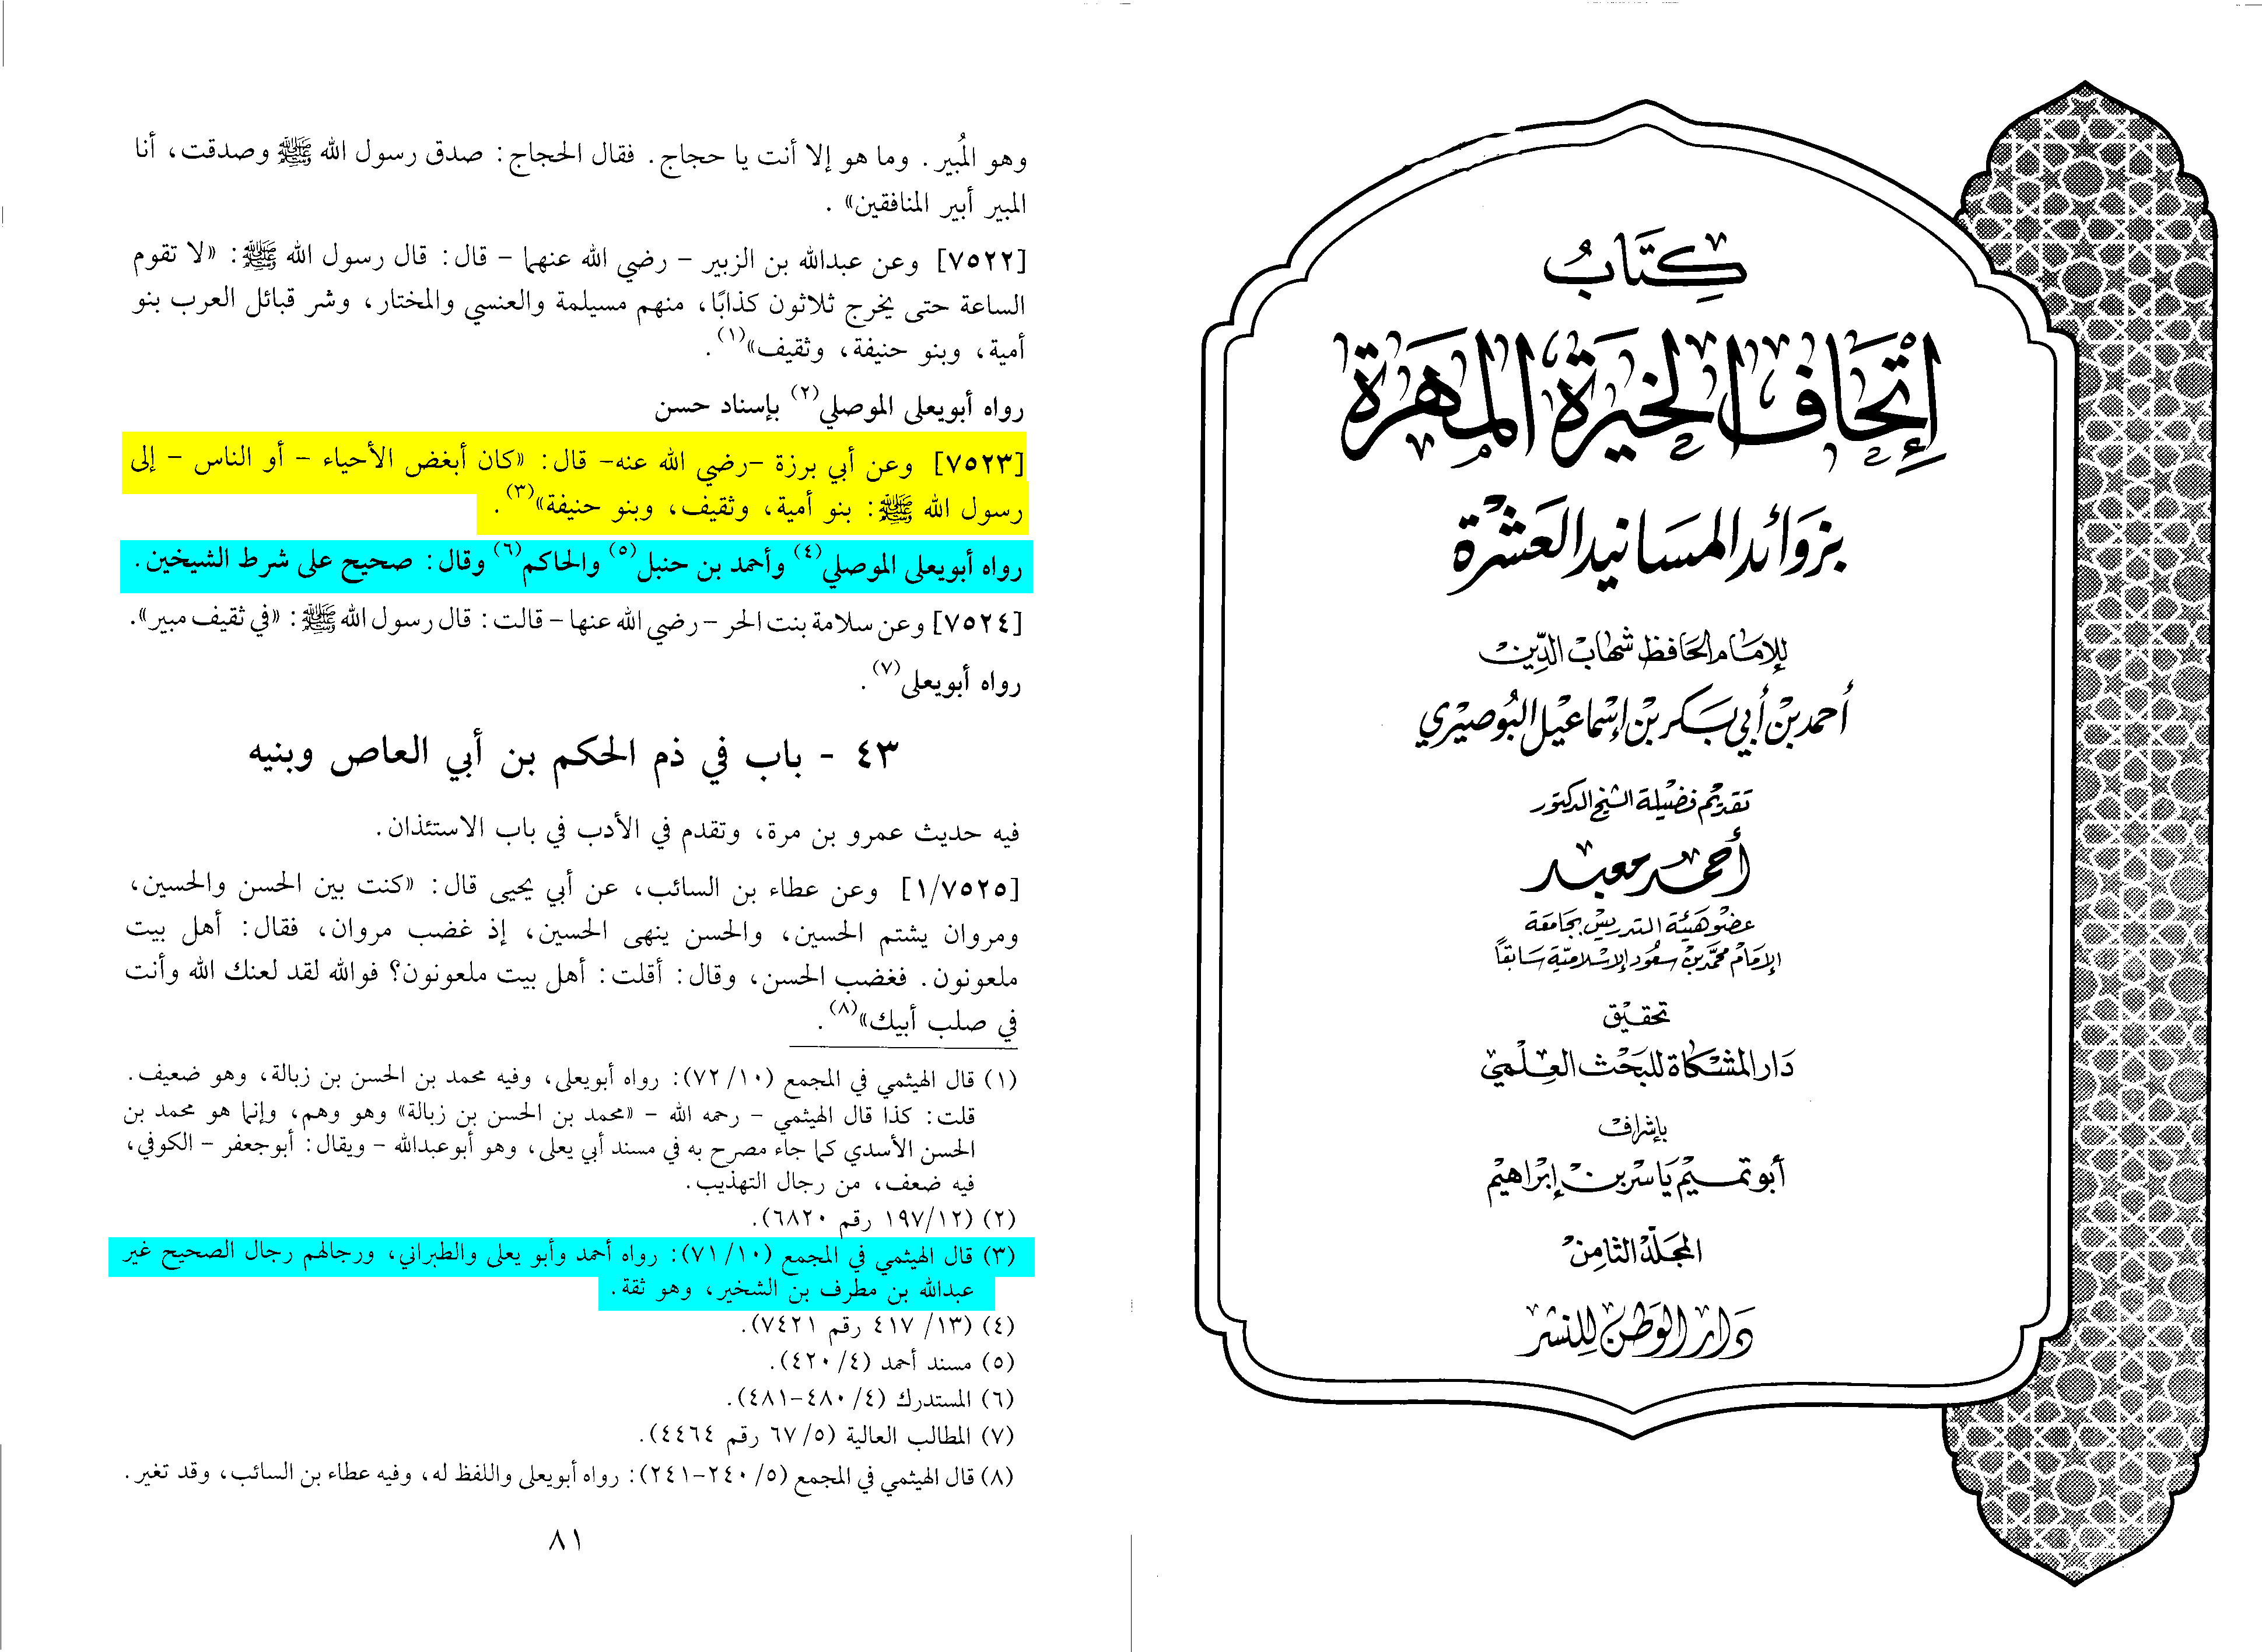 كتاب
إتحاف الخيرة المهرة
بزوائد المسانيد العشرة
للإمام الحافظ شهاب الدين
أحمد بن أبي بكر بن إسماعيل البوصيري
تقديم فضيلة الشيخ الدكتور
أحمد معبد
عضو هيئة التدريس بجامعة
الإمام محمد بن سعود الإسلامية سابقاً
تحقيق
دار المشكاة للبحث العلمي
بإشراف
أبو تميم ياسر بن إبراهيم
المجلد الثامن
دار الوطن للنشر
وهو المُبير. وما هو إلا أنت يا حجاج. فقال الحجاج: صدق رسول الله ﷺ وصدقت، أنا
المبير أبير المنافقين».
[٧٥٢٢] وعن عبدالله بن الزبير - رضي الله عنهما - قال: قال رسول الله ﷺ: «لا تقوم
الساعة حتى يخرج ثلاثون كذابًا، منهم مسيلمة والعنسي والمختار، وشر قبائل العرب بنو
أمية، وبنو حنيفة، وثقيف»(١).
رواه أبويعلى الموصلي(٢) بإسناد حسن
[٧٥٢٣] وعن أبي برزة -رضي الله عنه- قال: «كان أبغض الأحياء - أو الناس - إلى
رسول الله ﷺ: بنو أمية، وثقيف، وبنو حنيفة»(٣).
رواه أبويعلى الموصلي(٤) وأحمد بن حنبل(٥) والحاكم(٦) وقال: صحيح على شرط الشيخين.
[٧٥٢٤] وعن سلامة بنت الحر -رضي الله عنها- قالت: قال رسول الله ﷺ: «في ثقيف مبير».
رواه أبويعلى(٧).
٤٣ - باب في ذم الحكم بن أبي العاص وبنيه
فيه حديث عمرو بن مرة، وتقدم في الأدب في باب الاستئذان.
[١/٧٥٢٥] وعن عطاء بن السائب، عن أبي يحيى قال: «كنت بين الحسن والحسين،
ومروان يشتم الحسين، والحسن ينهى الحسين، إذ غضب مروان، فقال: أهل بيت
ملعونون. فغضب الحسن، وقال: أقلت: أهل بيت ملعونون؟ فوالله لقد لعنك الله وأنت
في صلب أبيك»(٨).
(١) قال الهيثمي في المجمع (١٠/ ٧٢): رواه أبويعلى، وفيه محمد بن الحسن بن زبالة، وهو ضعيف.
قلت: كذا قال الهيثمي - رحمه الله - «محمد بن الحسن بن زبالة» وهو وهم، وإنما هو محمد بن
الحسن الأسدي كما جاء مصرح به في مسند أبي يعلى، وهو أبوعبدالله - ويقال: أبوجعفر - الكوفي،
فيه ضعف، من رجال التهذيب.
(٢) (١٢/ ١٩٧ رقم ٦٨٢٠).
(٣) قال الهيثمي في المجمع (١٠/ ٧١): رواه أحمد وأبو يعلى والطبراني، ورجالهم رجال الصحيح غير
عبدالله بن مطرف بن الشخير، وهو ثقة.
(٤) (١٣/ ٤١٧ رقم ٧٤٢١).
(٥) مسند أحمد (٤/ ٤٢٠).
(٦) المستدرك (٤/ ٤٨٠-٤٨١).
(٧) المطالب العالية (٥/ ٦٧ رقم ٤٤٦٤).
(٨) قال الهيثمي في المجمع (٥/ ٢٤٠-٢٤١): رواه أبويعلى واللفظ له، وفيه عطاء بن السائب، وقد تغير.
٨١